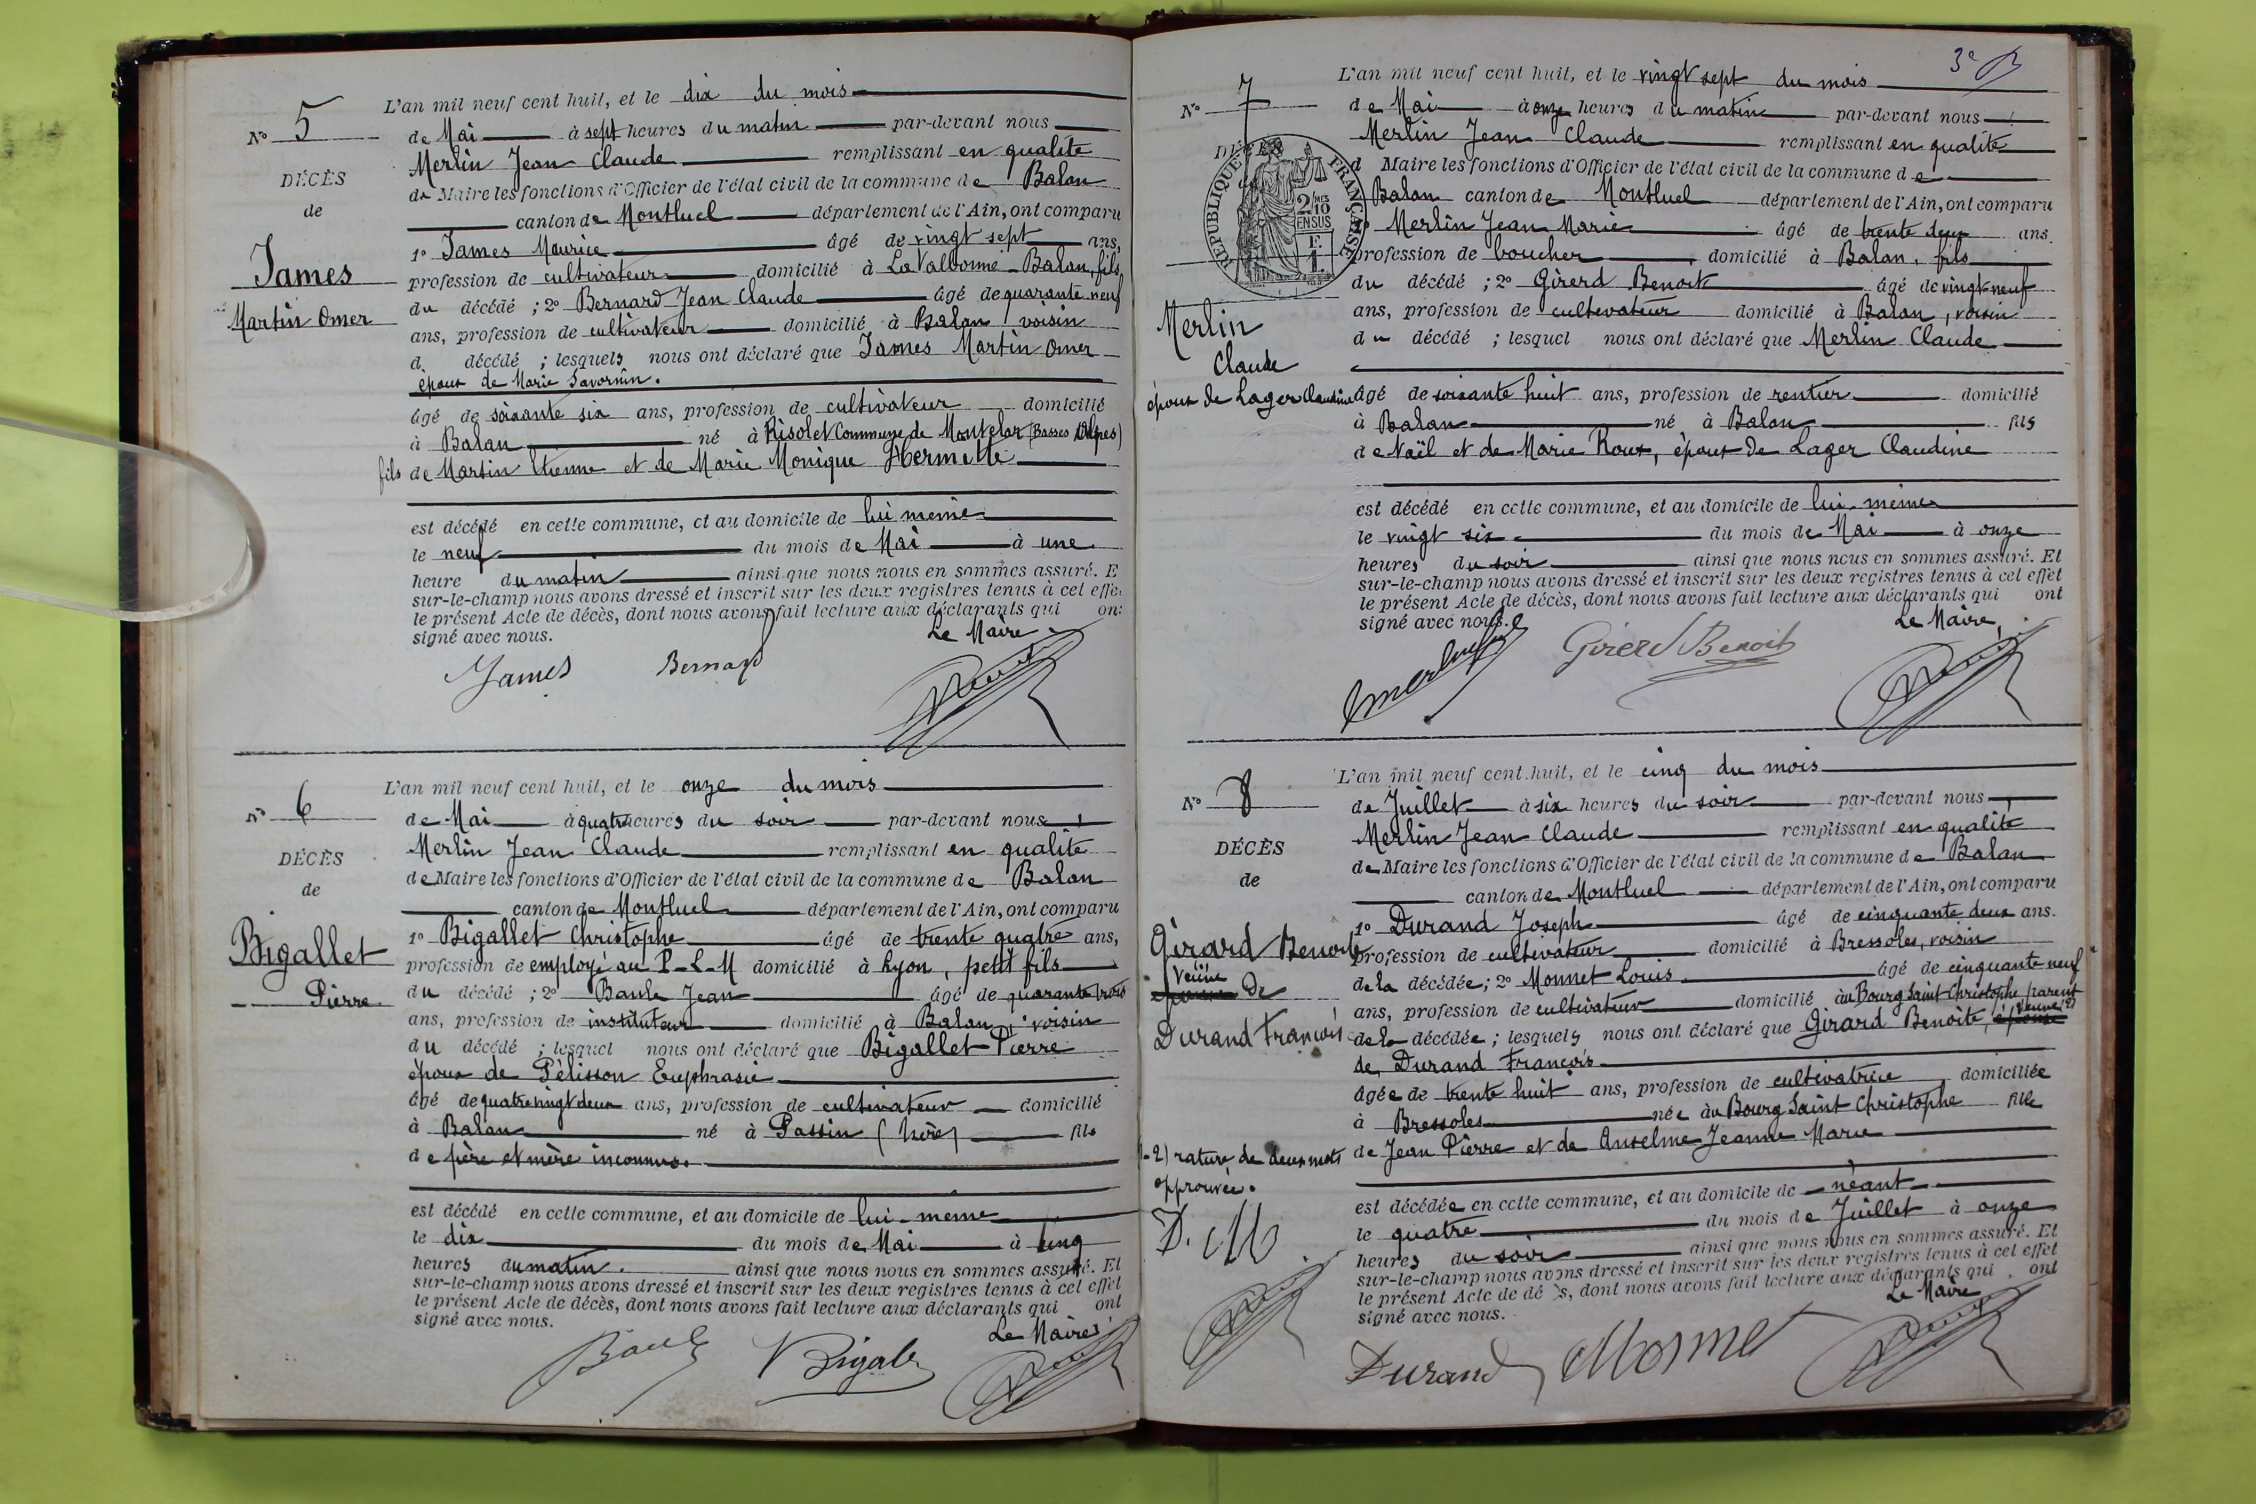 N° 5
DÉCÈS
de
James
Martin Omer
L'an mil neuf cent huit, et le dix du mois
de Mai à sept heures du matin par-devant nous
Merlin Jean Claude remplissant en qualité
de Maire les fonctions d'Officier de l'état civil de la commune de Balan
canton de Montluel département de l'Ain, ont comparu
1° James Maurice âgé de vingt sept ans,
profession de cultivateur domicilié à La Valbonne - Balan, fils
du décédé ; 2° Bernard Jean Claude âgé de quarante neuf
ans, profession de cultivateur domicilié à Balan voisin
d décédé ; lesquels nous ont déclaré que James Martin Omer
époux de Marie Savornin.
âgé de soixante six ans, profession de cultivateur domicilié
à Balan né à Risolet Commune de Montclar (Basses Alpes)
fils de Martin Etienne et de Marie Monique Hermitte
est décédé en cette commune, et au domicile de lui même
le neuf du mois de Mai à une
heure du matin ainsi que nous nous en sommes assuré. E
sur-le-champ nous avons dressé et inscrit sur les deux registres tenus à cet effe
le présent Acte de décès, dont nous avons fait lecture aux déclarants qui on
signé avec nous. Le Maire
James Bernard
N° 6
DÉCÈS
de
Bigallet
Pierre
L'an mil neuf cent huit, et le onze du mois
de Mai à quatre heures du soir par-devant nous
Merlin Jean Claude remplissant en qualité
de Maire les fonctions d'Officier de l'état civil de la commune de Balan
canton de Montluel département de l'Ain, ont comparu
1° Bigallet Christophe âgé de trente quatre ans,
profession de employé au P-L-M domicilié à Lyon, petit fils
du décédé ; 2° Banle Jean âgé de quarante trois
ans, profession de instituteur domicilié à Balan, voisin
du décédé ; lesquel nous ont déclaré que Bigallet Pierre
époux de Pélisson Euphrasie
âgé de quatre vingt deux ans, profession de cultivateur domicilié
à Balan né à Passin (Isère) fils
de père et mère inconnus.
est décédé en cette commune, et au domicile de lui-même
le dix du mois de Mai à cinq
heures du matin. ainsi que nous nous en sommes assuré. Et
sur-le-champ nous avons dressé et inscrit sur les deux registres tenus à cet effet
le présent Acte de décès, dont nous avons fait lecture aux déclarants qui ont
signé avec nous. Le Maire
3e
N° 7
DÉCÈS
RÉPUBLIQUE FRANÇAISE
2/10 MES
EN SUS
F. 1.
Merlin
Claude
époux de Lager Claudine
L'an mil neuf cent huit, et le vingt sept du mois
de Mai à onze heures du matin par-devant nous
Merlin Jean Claude remplissant en qualité
d Maire les fonctions d'Officier de l'état civil de la commune de
Balan canton de Montluel département de l'Ain, ont comparu
Merlin Jean Marie âgé de trente deux ans.
profession de boucher domicilié à Balan, fils
du décédé ; 2° Girerd Benoit âgé de vingt neuf
ans, profession de cultivateur domicilié à Balan, voisin
du décédé ; lesquel nous ont déclaré que Merlin Claude
âgé de soixante huit ans, profession de rentier domicilié
à Balan né à Balan fils
de Naël et de Marie Roux, époux de Lager Claudine
est décédé en cette commune, et au domicile de lui-même
le vingt six du mois de Mai à onze
heures du soir ainsi que nous nous en sommes assuré. Et
sur-le-champ nous avons dressé et inscrit sur les deux registres tenus à cet effet
le présent Acte de décès, dont nous avons fait lecture aux déclarants qui ont
signé avec nous. Le Maire,
Girerd Benoit
N° 8
DÉCÈS
de
Girard Benoite
Veuve
épouse de
Durand François
L'an mil neuf cent huit, et le cinq du mois
de Juillet à six heures du soir par-devant nous
Merlin Jean Claude remplissant en qualité
de Maire les fonctions d'Officier de l'état civil de la commune de Balan
canton de Montluel département de l'Ain, ont comparu
1° Durand Joseph âgé de cinquante deux ans.
profession de cultivateur domicilié à Bressoles, voisin
de la décédée ; 2° Monnet Louis âgé de cinquante neuf
ans, profession de cultivateur domicilié au Bourg Saint-Christophe, parent
de la décédée ; lesquels nous ont déclaré que Girard Benoite, épouse veuve (2)
de Durand François
âgée de trente huit ans, profession de cultivatrice domiciliée
à Bressoles née au Bourg Saint Christophe fille
de Jean Pierre et de Anselme Jeanne Marie
est décédée en cette commune, et au domicile de néant
le quatre du mois de Juillet à onze
heures du soir ainsi que nous nous en sommes assuré. Et
sur-le-champ nous avons dressé et inscrit sur les deux registres tenus à cet effet
le présent Acte de dé s, dont nous avons fait lecture aux déclarants qui ont
signé avec nous. Le Maire
2) rature de deux mots
approuvée.
D. M
Durand Monnet